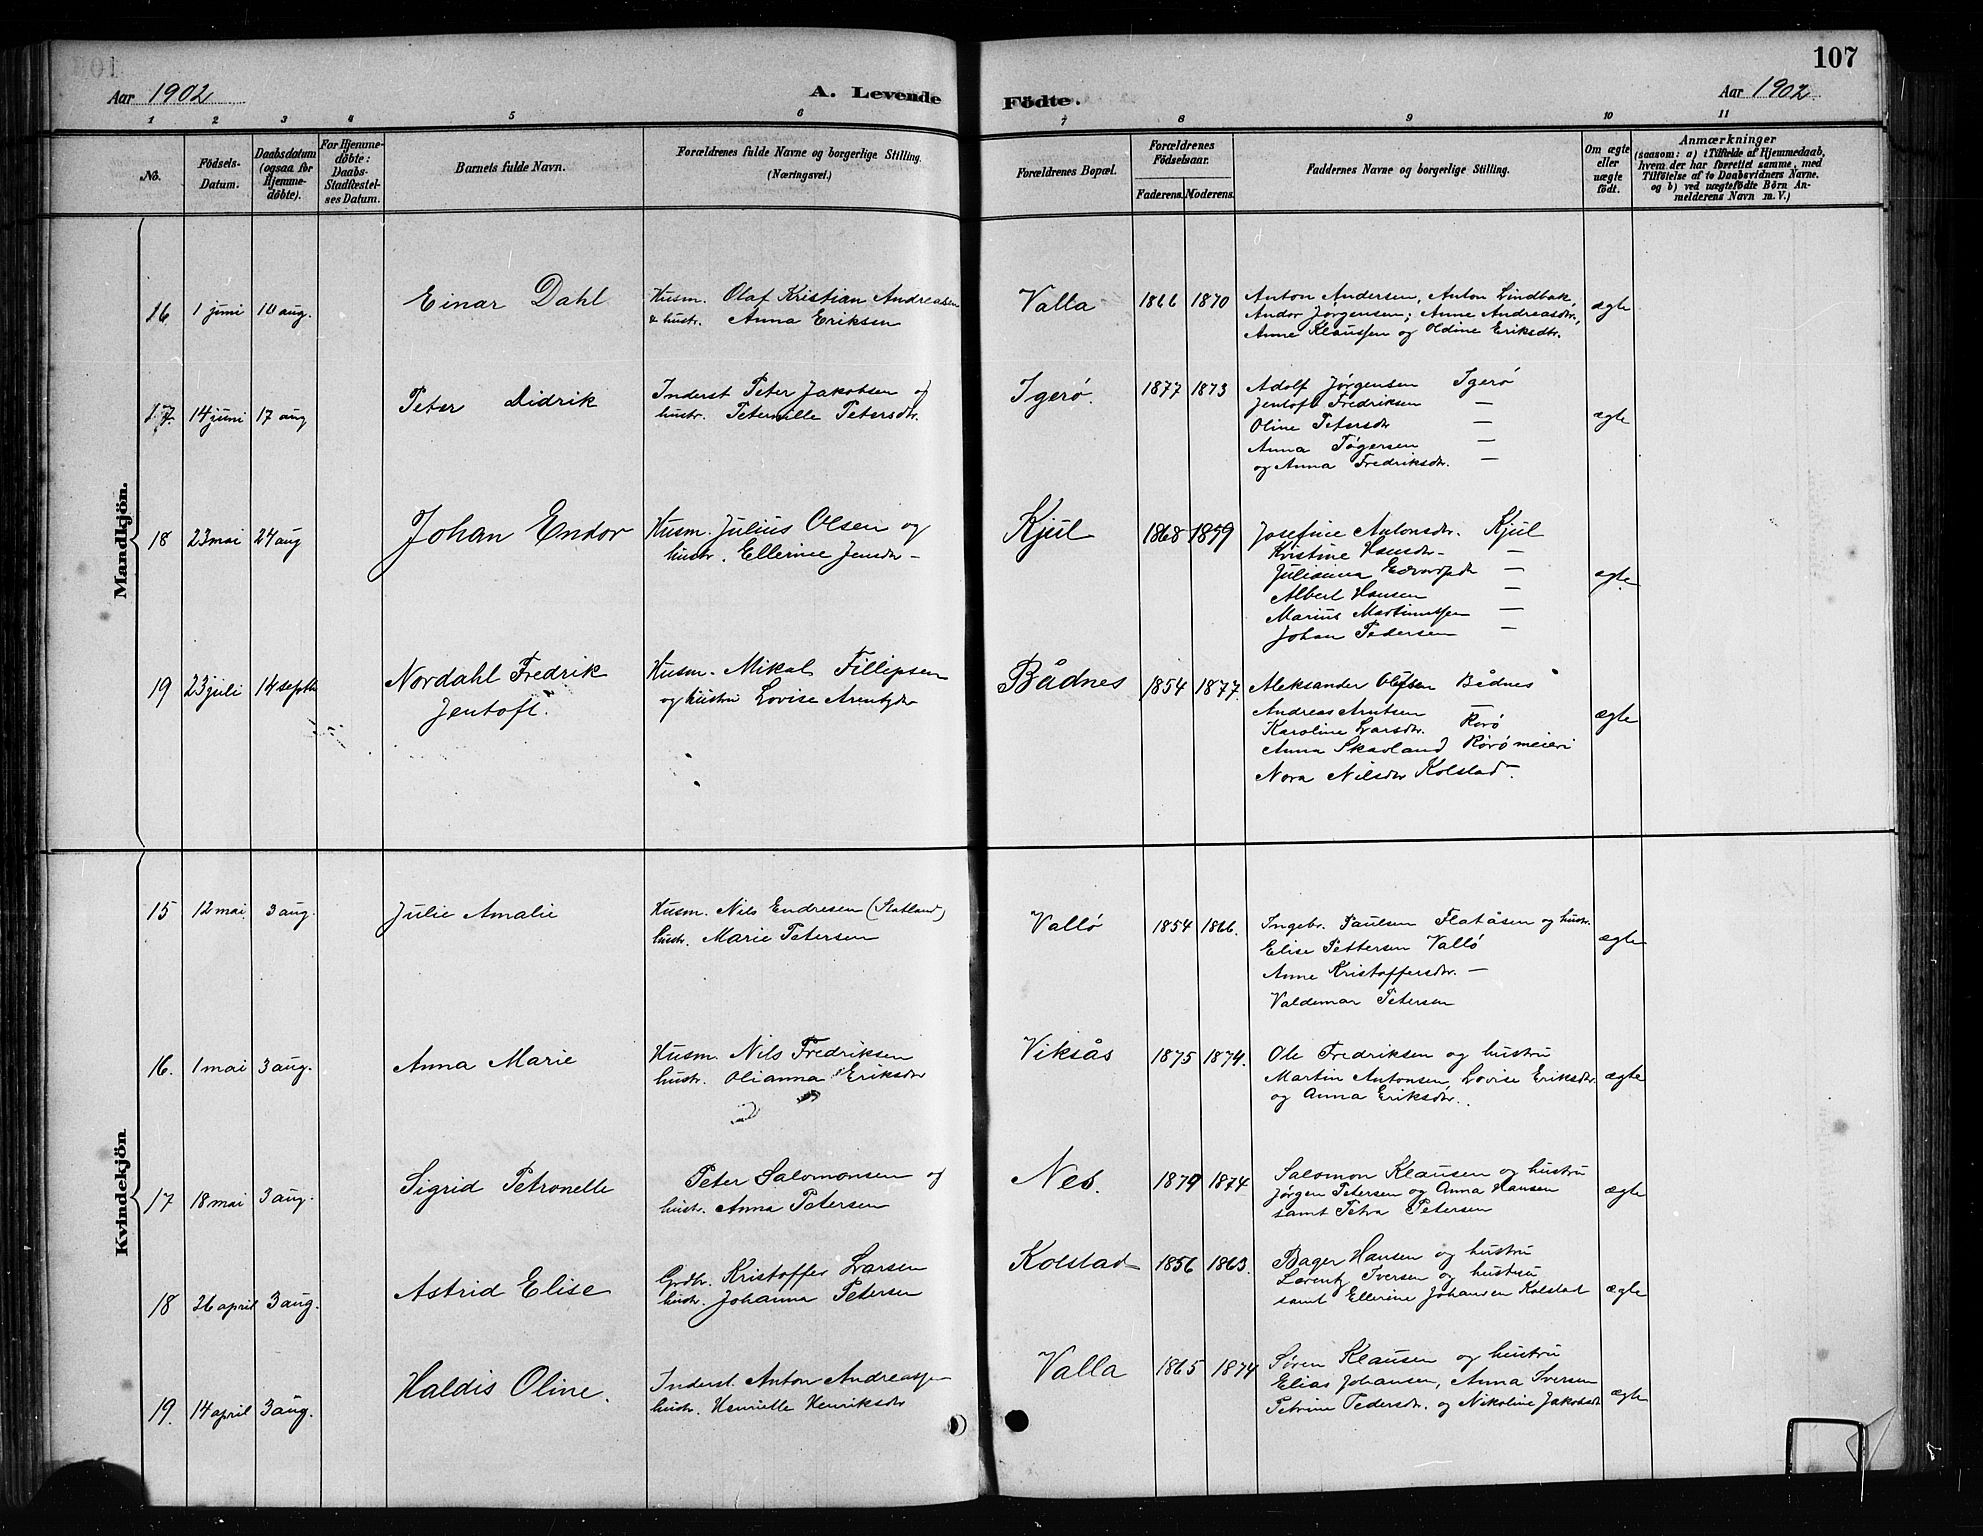 107
Aar 1902
A. Levende Födte.
Aar 1902
1 2 3 4 5 6 7 8 9 10 11
No.
Födsels-Datum.
Daabsdatum (ogsaa for Hjemme-döbte).
For Hjemme-döbte: Daabs-Stadfæstel-ses Datum.
Barnets fulde Navn.
Forældrenes fulde Navne og borgerlige Stilling. (Næringsvei.)
Forældrenes Bopæl.
Forældrenes Födselsaar.
Faderens. Moderens.
Faddernes Navne og borgerlige Stilling.
Om ægte eller uægte födt.
Anmærkninger
(saasom: a) i Tilfælde af Hjemmedaab,
hvem der har forrettet samme, med
Tilföielse af to Daabsvidners Navne.
og b) ved uægtefödte Börn An-
melderens Navn m. V.)
Mandkjön.
16 1 juni 10 aug. Einar Dahl
Husm. Olaf Kristian Andreasen
& hustr. Anna Eriksen
Valla 1866 1870
Anton Andersen, Anton Lindbak,
Andor Jørgensen; Anne Andreasdtr.,
Anne Klaussen og Oldine Eriksdtr.
ægte
17. 14 juni 17 aug Peter Didrik
Inderst Peter Jakobsen og
hustr. Peternille Petersdtr.
Igerø. 1877 1873
Adolf Jørgensen Igerø
Jentoft Fredriksen —
Oline Petersdtr —
Anna Tøgersen —
og Anna Fredriksdtr. —
ægte
18 23 mai 24 aug Johan Endor
Husm. Julius Olsen og
hustr. Ellerine Jensdtr –
Kjul 1868 1859
Josefine Antonsdtr. Kjul
Kristine Hansdtr. —
Julianna —
Albert Hansen —
Marius Martinussen —
Johan Pedersen —
ægte
19 23 juli 14 septb Nordahl Fredrik
Jentoft.
Husm. Mikal Fillipsen
og hustru Lovise Arentsdtr
Bådnes 1854 1877.
Aleksander Olsen Bådnes
Andreas Arntsen —
Karoline Larsdtr. Rørø
Anna Skavland Rørø meieri
Nora Nilsdtr Kolstad.
ægte
Kvindekjön
15 12 mai 3 aug. Julie Amalie
Husm. Nils Endresen (Statland)
hustr. Marie Petersen
Vallø 1854 1866.
Ingebr. Paulsen Flatåsen og hustr.
Elise Pettersen Vallø
Anne Kristoffersdtr. —
Valdemar Petersen
ægte
16. 1 mai 3 aug. Anna Marie
Husm. Nils Fredriksen
hustr. Olianna Eriksdtr
Viksås 1875 1874.
Ole Fredriksen og hustru
Martin Antonsen, Lovise Eriksdtr.
og Anna Eriksdtr.
ægte
17 18 mai 3 aug. Sigrid Petronelle
Peter Salomonsen og
hustr. Anna Petersen
Nes. 1879 1874
Salomon Klausen og hustru
Jørgen Petersen og Anna Hansen
samt Petra Petersen
ægte
18 26 april 3 aug. Astrid Elise
Grdbr. Kristoffer Larsen
hustr. Johanna Petersen
Kolstad 1856 1863.
Bager Hansen og hustru
Lorentz Iversen og hustru
samt Ellerine Johansen Kolstad
ægte
19. 14 april 3 aug. Haldis Oline.
Inderst. Anton Andreassen
hustr. Henrielle Henriksdtr
Valla 1865 1874
Søren Klausen og hustru
Elias Johansen, Anna Iversen
Petrine Pedersdtr. og Nikoline Jakobsdtr
ægte